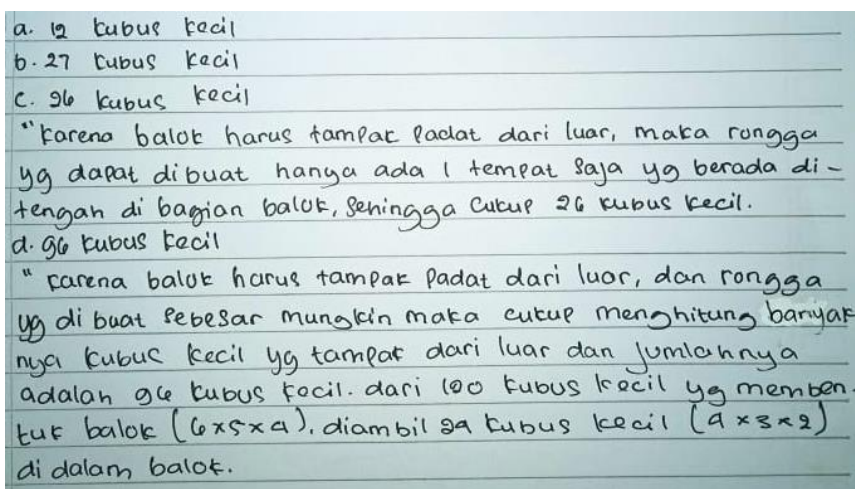 a. 12 kubus kecil
b. 27 kubus kecil
c. 26 kubus kecil
"karena balok harus tampak padat dari luar, maka rongga
yg dapat dibuat hanya ada 1 tempat saja yg berada di-
tengah di bagian balok, sehingga cukup 26 kubus kecil.
d. 96 kubus kecil
" karena balok harus tampak padat dari luar, dan rongga
yg di buat sebesar mungkin maka cukup menghitung banyak
nya kubus kecil yg tampak dari luar dan jumlahnya
adalah 96 kubus kecil. dari 120 kubus kecil yg memben-
tuk balok (6x5x4), diambil 24 kubus kecil (4x3x2)
di dalam balok.